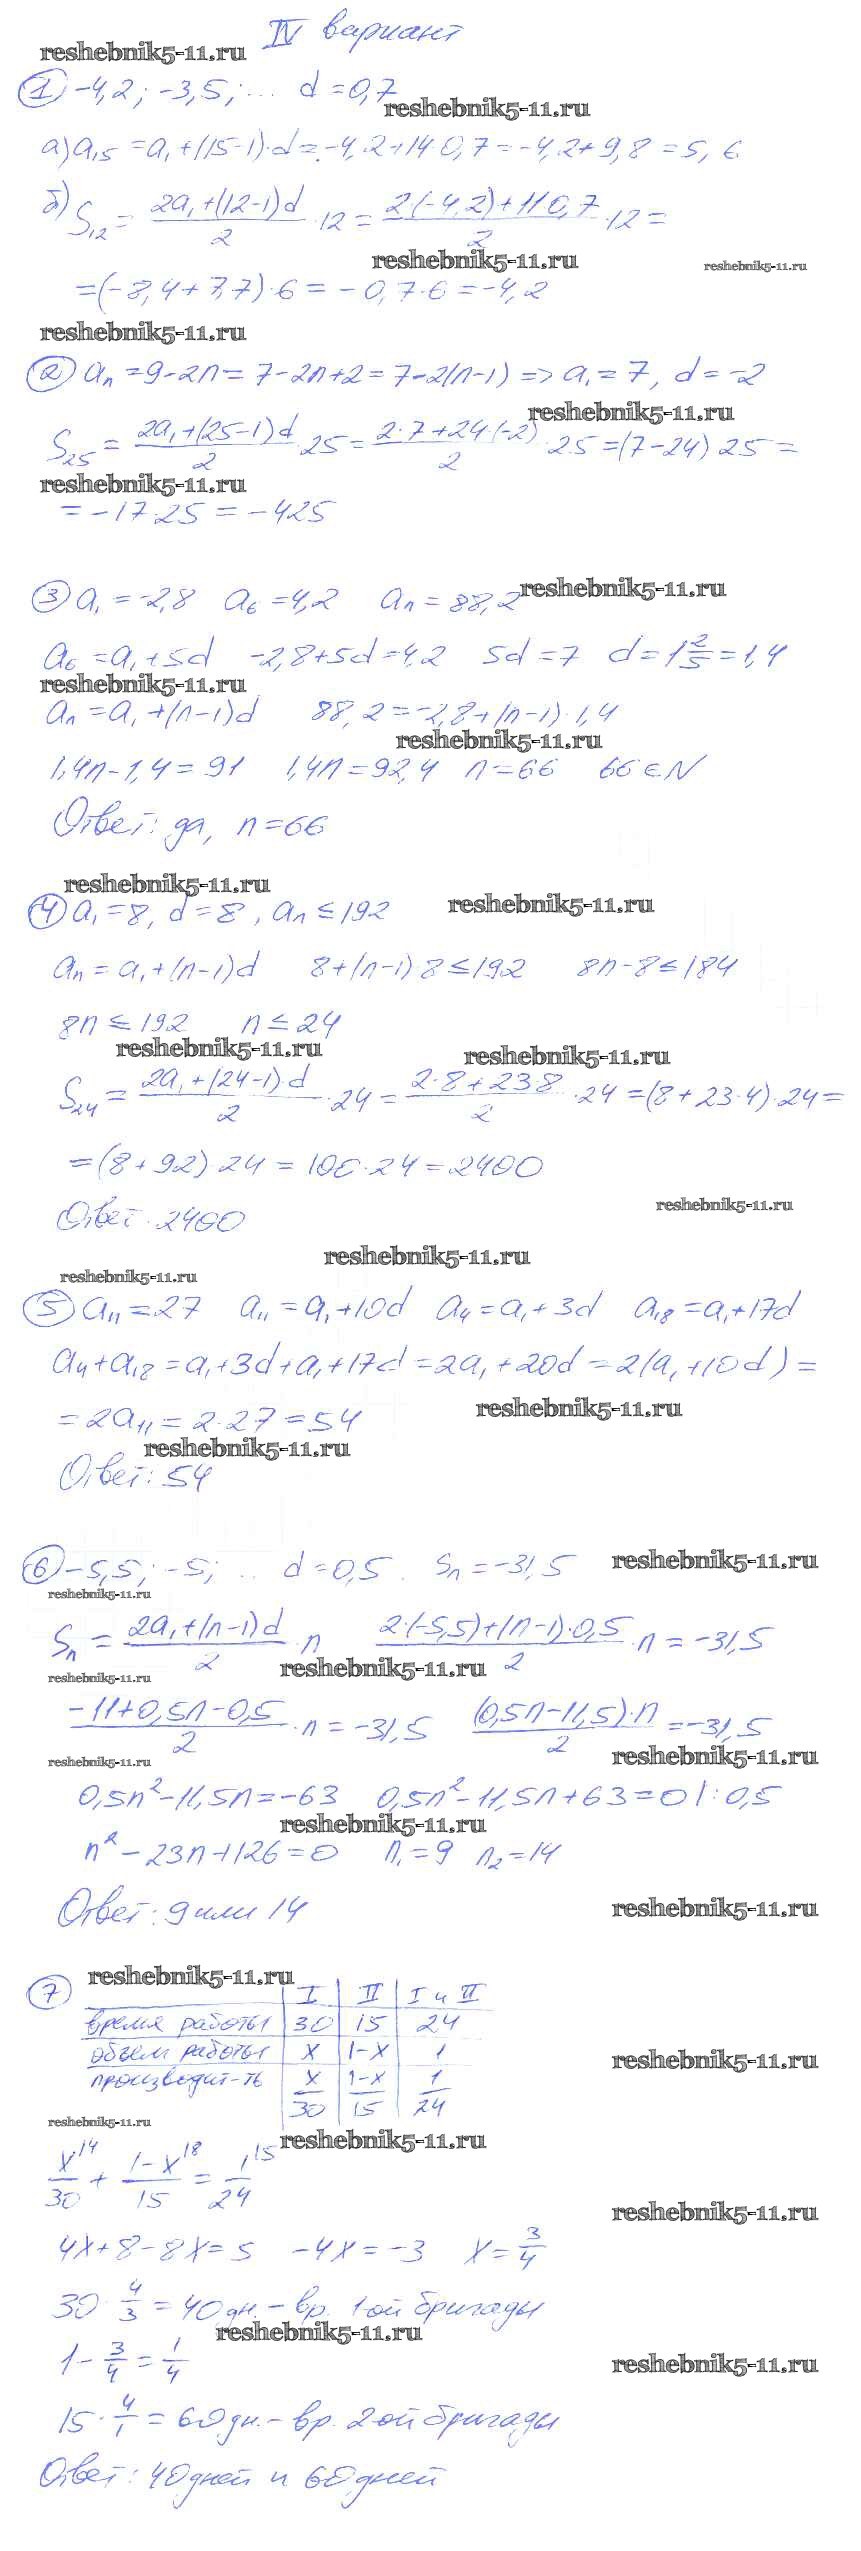 IV вариант
reshebnik5-11.ru
① -4,2; -3,5; ... d=0,7
reshebnik5-11.ru
а) a₁₅ = a₁+(15-1)·d = -4,2+14·0,7 = -4,2+9,8 = 5,6
б) S₁₂ = (2a₁+(12-1)d)/2 ·12 = (2(-4,2)+11·0,7)/2 ·12 =
reshebnik5-11.ru reshebnik5-11.ru
=(-8,4+7,7)·6 = -0,7·6 = -4,2
reshebnik5-11.ru
② aₙ = 9-2n = 7-2n+2 = 7-2(n-1) => a₁ = 7, d = -2
reshebnik5-11.ru
S₂₅ = (2a₁+(25-1)d)/2 ·25 = (2·7+24·(-2))/2 ·25 = (7-24)·25 =
reshebnik5-11.ru
= -17·25 = -425
③ a₁ = -2,8 a₆ = 4,2 aₙ = 88,2
reshebnik5-11.ru
a₆ = a₁+5d -2,8+5d = 4,2 5d = 7 d = 1 2/5 = 1,4
reshebnik5-11.ru
aₙ = a₁+(n-1)d 88,2 = -2,8+(n-1)·1,4
reshebnik5-11.ru
1,4n-1,4 = 91 1,4n = 92,4 n = 66 66∈N
Ответ: да, n=66
reshebnik5-11.ru
④ a₁ = 8, d = 8, aₙ ≤ 192
reshebnik5-11.ru
aₙ = a₁+(n-1)d 8+(n-1)·8 ≤ 192 8n-8 ≤ 184
8n ≤ 192 n ≤ 24
reshebnik5-11.ru reshebnik5-11.ru
S₂₄ = (2a₁+(24-1)·d)/2 ·24 = (2·8+23·8)/2 ·24 = (8+23·4)·24 =
= (8+92)·24 = 100·24 = 2400
reshebnik5-11.ru
Ответ: 2400
reshebnik5-11.ru
reshebnik5-11.ru
⑤ a₁₁ = 27 a₁₁ = a₁+10d a₄ = a₁+3d a₁₈ = a₁+17d
a₄+a₁₈ = a₁+3d+a₁+17d = 2a₁+20d = 2(a₁+10d) =
= 2a₁₁ = 2·27 = 54
reshebnik5-11.ru
reshebnik5-11.ru
Ответ: 54
⑥ -5,5; -5; ... d = 0,5. Sₙ = -31,5
reshebnik5-11.ru
reshebnik5-11.ru
Sₙ = (2a₁+(n-1)d)/2 ·n (2·(-5,5)+(n-1)·0,5)/2 ·n = -31,5
reshebnik5-11.ru
reshebnik5-11.ru
(-11+0,5n-0,5)/2 ·n = -31,5 ((0,5n-11,5)·n)/2 = -31,5
reshebnik5-11.ru
reshebnik5-11.ru
0,5n²-11,5n = -63 0,5n²-11,5n+63 = 0 |:0,5
reshebnik5-11.ru
n²-23n+126 = 0 n₁ = 9 n₂ = 14
Ответ: 9 или 14
reshebnik5-11.ru
⑦ reshebnik5-11.ru
I II I и II
время работы 30 15 24
объем работы x 1-x 1
reshebnik5-11.ru
производит-ть x/30 (1-x)/15 1/24
reshebnik5-11.ru
reshebnik5-11.ru
x^\4/30 + (1-x)^\8/15 = 1^\5/24
reshebnik5-11.ru
4x+8-8x = 5 -4x = -3 x = 3/4
30·4/3 = 40 дн. – вр. 1-ой бригады
reshebnik5-11.ru
1-3/4 = 1/4
reshebnik5-11.ru
15·4/1 = 60 дн. – вр. 2 ой бригады
Ответ: 40 дней и 60 дней